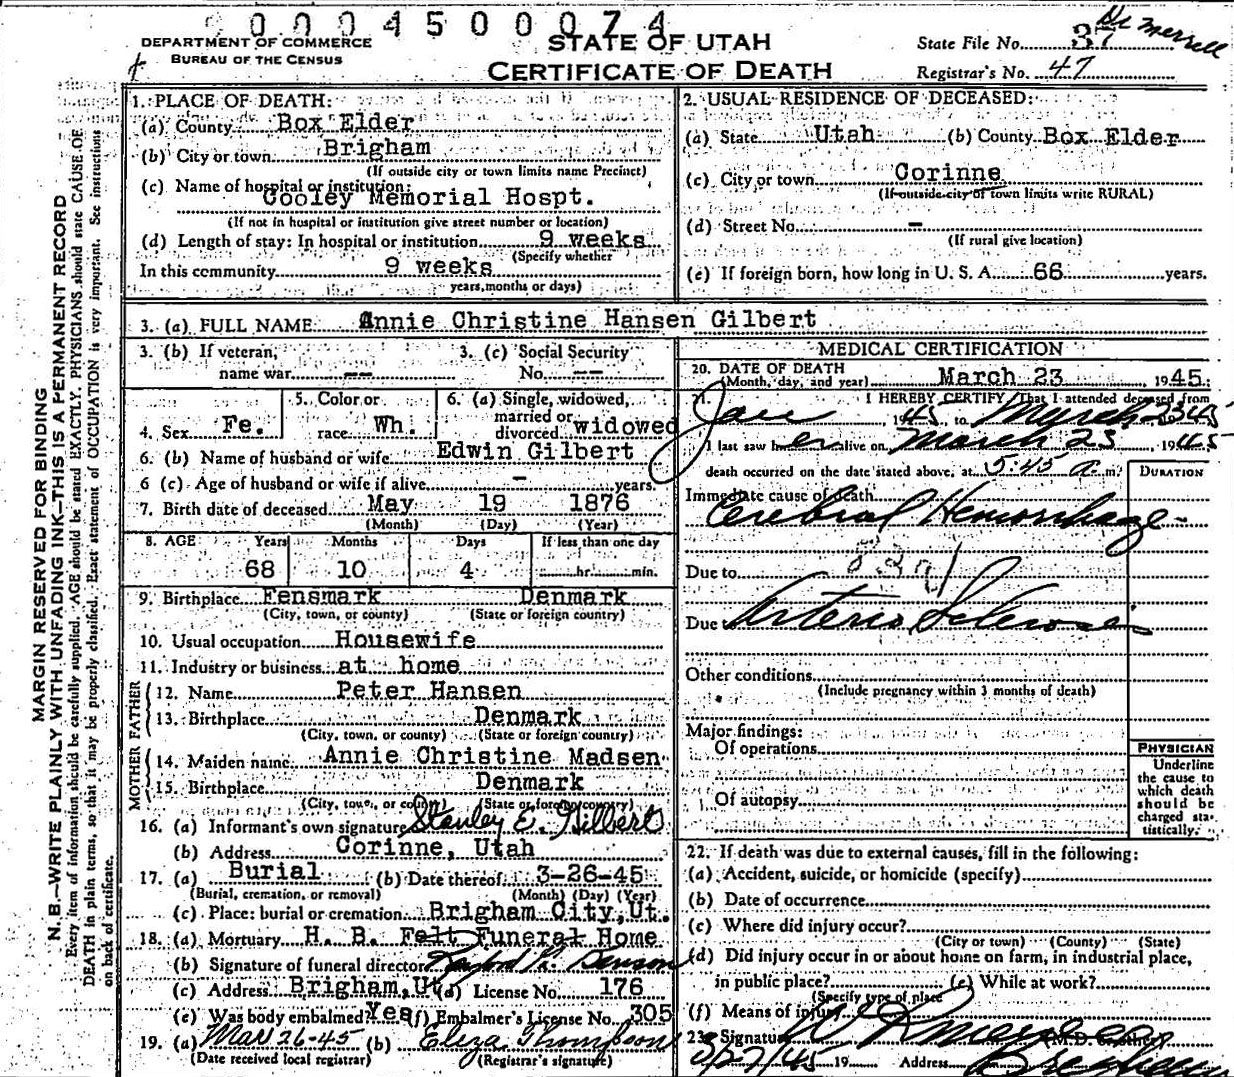 0004500074
DEPARTMENT OF COMMERCE
BUREAU OF THE CENSUS
STATE OF UTAH
CERTIFICATE OF DEATH
State File No. 37
Registrar's No. 47
MARGIN RESERVED FOR BINDING
N. B.—WRITE PLAINLY WITH UNFADING INK—THIS IS A PERMANENT RECORD
Every item of information should be carefully supplied. AGE should be stated EXACTLY. PHYSICIANS should state CAUSE OF
DEATH in plain terms, so that it may be properly classified. Exact statement of OCCUPATION is very important. See instructions
on back of certificate.
1. PLACE OF DEATH:
(a) County Box Elder
(b) City or town Brigham
(If outside city or town limits name Precinct)
(c) Name of hospital or institution:
Cooley Memorial Hospt.
(If not in hospital or institution give street number or location)
(d) Length of stay: In hospital or institution 9 weeks
(Specify whether
In this community 9 weeks
years, months or days)
2. USUAL RESIDENCE OF DECEASED:
(a) State Utah (b) County Box Elder
(c) City or town Corinne
(If outside city of town limits write RURAL)
(d) Street No. -
(If rural give location)
(e) If foreign born, how long in U. S. A. 66 years.
3. (a) FULL NAME Annie Christine Hansen Gilbert
3. (b) If veteran,
name war --
3. (c) Social Security
No. --
4. Sex Fe.
5. Color or
race Wh.
6. (a) Single, widowed,
married or
divorced widowed
6. (b) Name of husband or wife Edwin Gilbert
6 (c) Age of husband or wife if alive - years.
7. Birth date of deceased May 19 1876
(Month) (Day) (Year)
8. AGE Years Months Days If less than one day
68 10 4 hr. min.
9. Birthplace Fensmark Denmark
(City, town, or county) (State or foreign country)
10. Usual occupation Housewife
11. Industry or business at home
FATHER
12. Name Peter Hansen
13. Birthplace Denmark
(City, town, or county) (State or foreign country)
MOTHER
14. Maiden name Annie Christine Madsen
15. Birthplace Denmark
(City, town, or county) (State or foreign country)
16. (a) Informant's own signature Stanley E. Gilbert
(b) Address Corinne, Utah
17. (a) Burial (b) Date thereof 3-26-45
(Burial, cremation, or removal) (Month) (Day) (Year)
(c) Place: burial or cremation Brigham City, Ut.
18. (a) Mortuary H. B. Felt Funeral Home
(b) Signature of funeral director
(c) Address Brigham, Ut. (d) License No. 176
(e) Was body embalmed? Yes (f) Embalmer's License No. 305
19. (a) Mar 26-45 (b) Eliza Thompson
(Date received local registrar) (Registrar's signature)
MEDICAL CERTIFICATION
20. DATE OF DEATH
(Month, day, and year) March 23, 1945
21. I HEREBY CERTIFY, That I attended deceased from
Jan, 1945, to March 23 1945
I last saw her alive on March 23, 1945
death occurred on the date stated above, at 5:45 a. m.
DURATION
Immediate cause of death
Cerebral Hemorrhage
Due to
Due to Arterio Sclerosis
Other conditions
(Include pregnancy within 3 months of death)
Major findings:
Of operations
Of autopsy
PHYSICIAN
Underline
the cause to
which death
should be
charged sta-
tistically.
22. If death was due to external causes, fill in the following:
(a) Accident, suicide, or homicide (specify)
(b) Date of occurrence
(c) Where did injury occur?
(City or town) (County) (State)
(d) Did injury occur in or about home on farm, in industrial place,
in public place? (e) While at work?
(Specify type of place
(f) Means of injury
23. Signature
3/27/45 19 Address Brigham